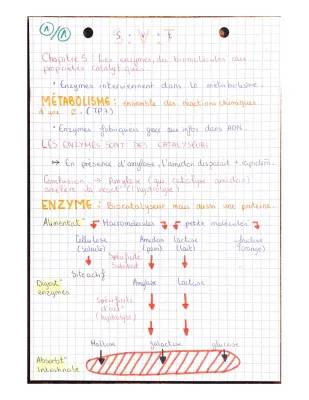 1/1
S . V . T
Chapitre 5 : Les enzymes, des biomolécules aux
propriétés catalytiques.
• Enzymes interviennent dans le métabolisme.
MÉTABOLISME : ensemble des réactions chimiques
d'une (TP7)
• Enzymes fabriquées grâce aux infos dans ADN.
LES ENZYMES SONT DES CATALYSEURS
En présence d'amylase, l'amidon disparait + rapidem.
Conclusion → Amylase (qui catalyse amidon)
accélère la réact° (hydrolyse)
ENZYME : Biocatalyseur mais aussi une protéine.
Alimentat° Macromolécules petite molécules
Cellulose Amidon Lactose fructose
(salade) (pain) (lait) (orange)
Spécificité
Substrat
Site actif
Digest° Amylase Lactase
enzymes
Spécificité
d'act°
(hydrolyse)
Maltose galactose glucose
Absorbt°
Intestinale